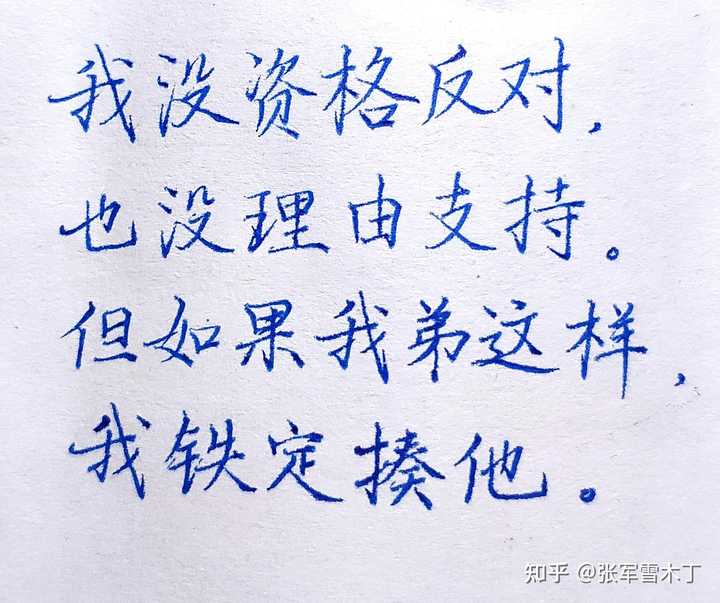 我没资格反对，
也没理由支持。
但如果我弟这样，
我铁定揍他。
知乎 @张军雪木丁